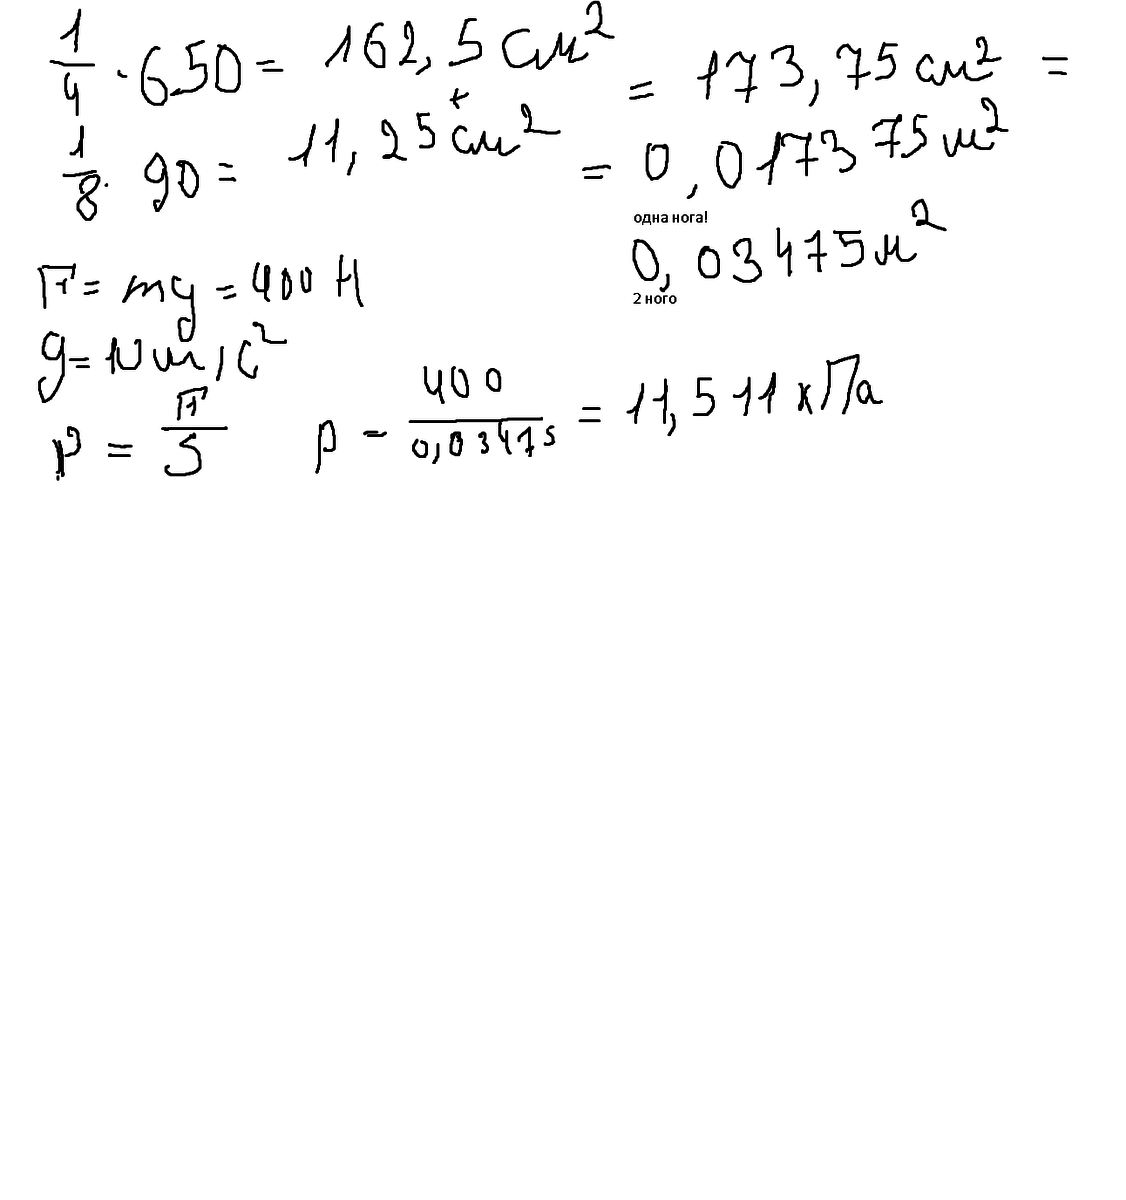 1/4 · 650 = 162,5 см² +
= 173,75 см² =
1/8 · 90 = 11,25 см²
= 0,017375 м²
одна нога!
0,03475 м²
2 ного
F = mg = 400 Н
g = 10 м/с²
p = F/S
p - 400/0,03475 = 11,511 кПа